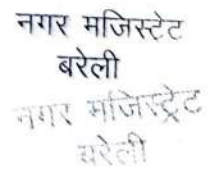 नगर मजिस्टेट
बरेली
नगर मजिस्ट्रेट
बरेली